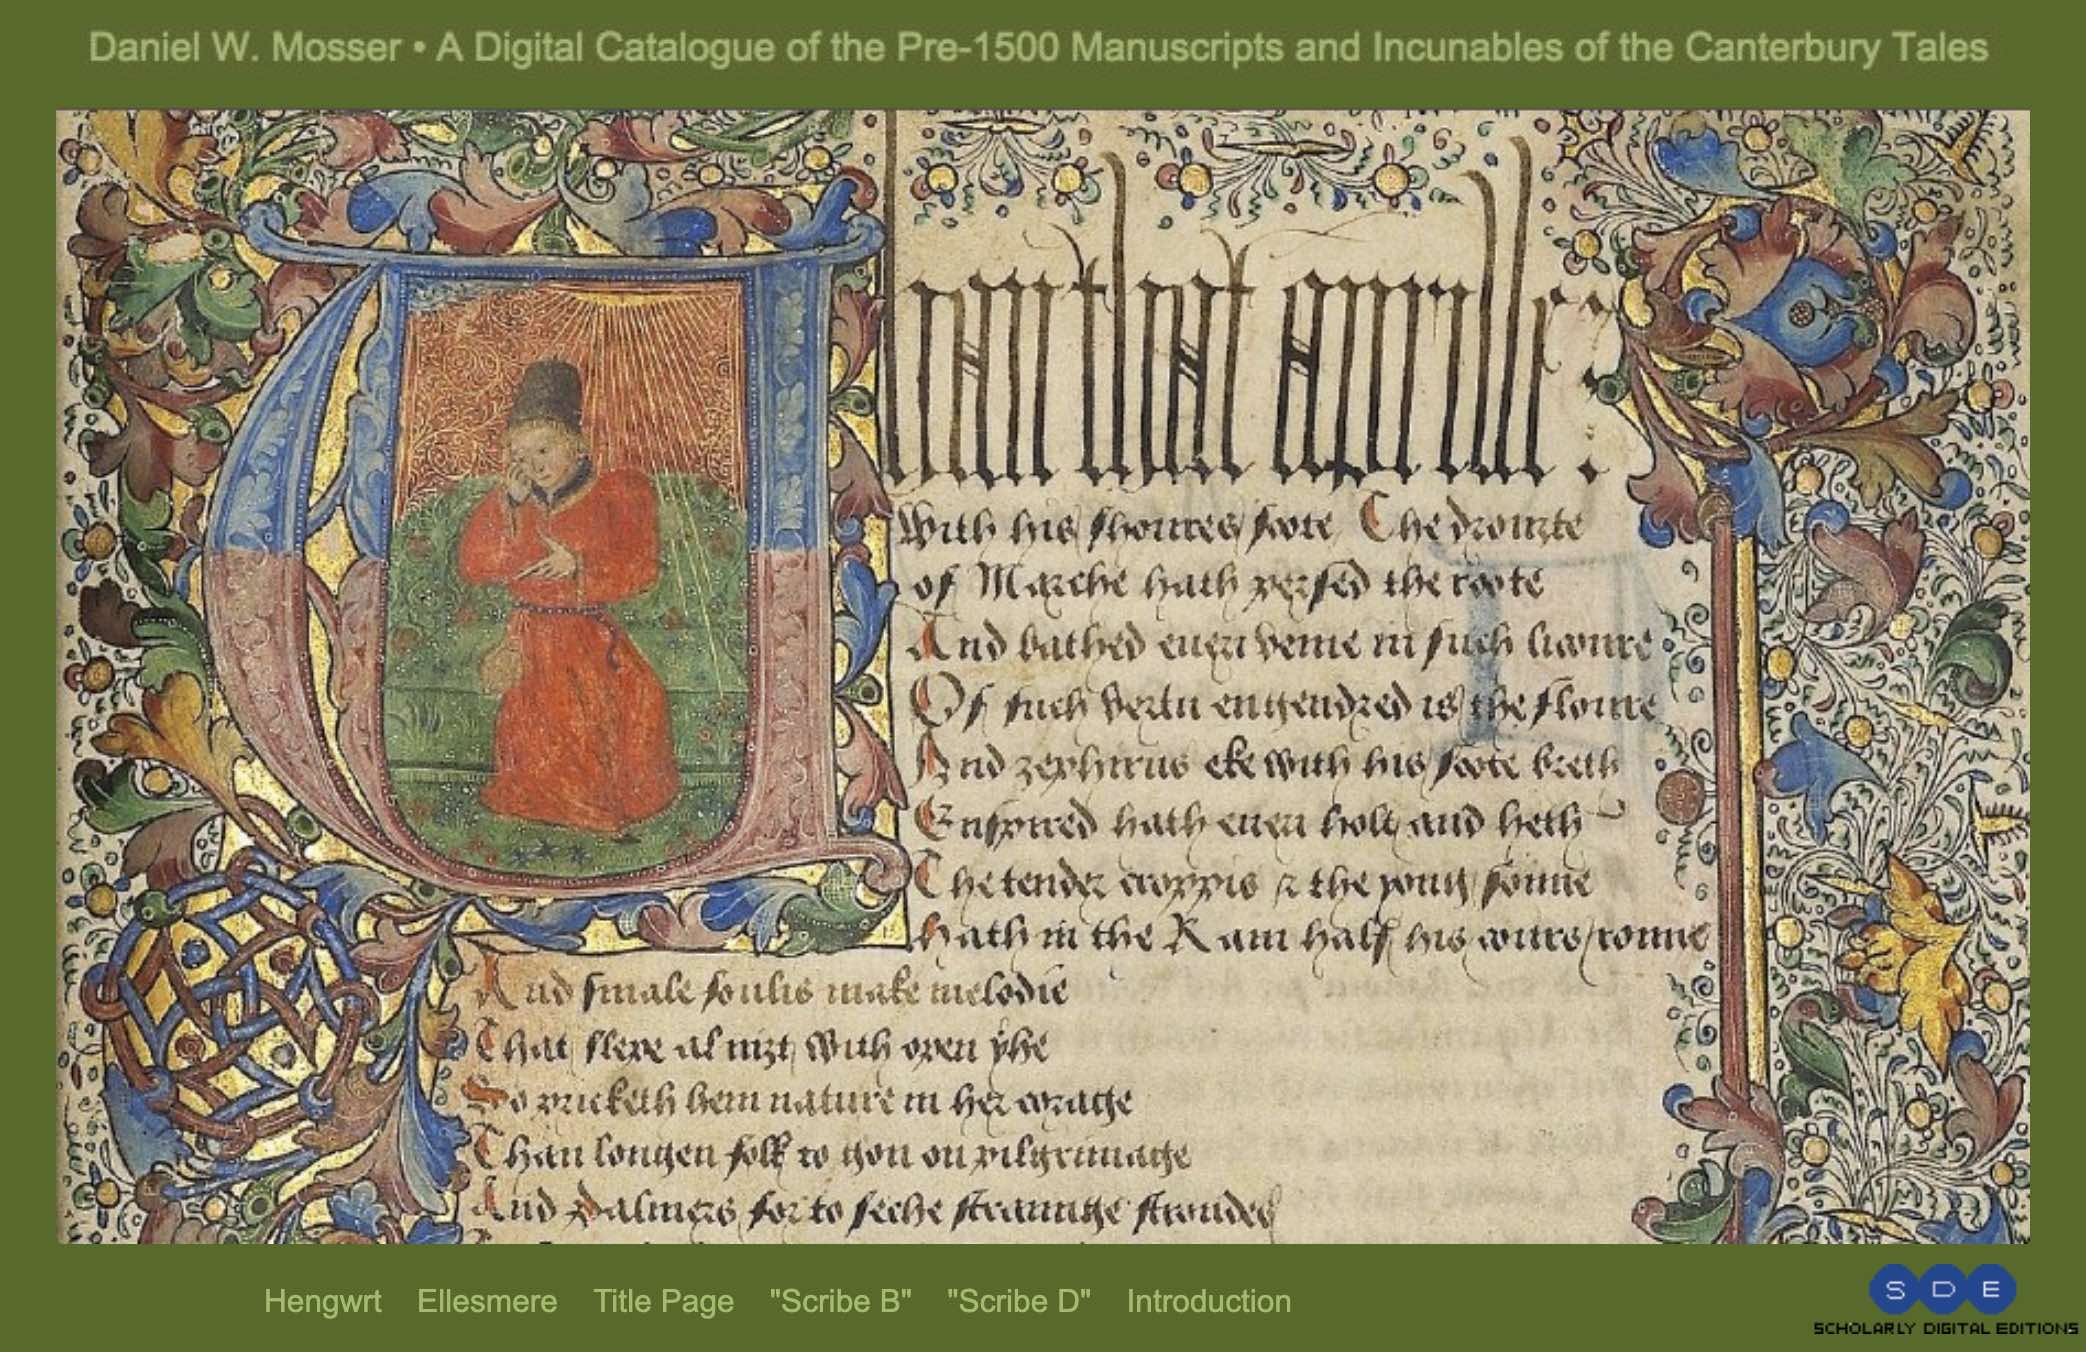 Daniel W. Mosser • A Digital Catalogue of the Pre-1500 Manuscripts and Incunables of the Canterbury Tales
Whan that aprille :
With his shoures soote The drouzte
of Marche hath persed the roote
And bathed euery veine in such licoure
Of such vertu engendred is the floure
And zephirus eke with his soote breth
Enspired hath euery holt and heth
The tender croppis & the yong sonne
hath in the Ram half his cours ronne
And smale foulis make melodie
That slepe al nizt with open yhe
So pricketh hem nature in her corage
Than longen folk to gon on pilgrimage
And Palmers for to seche straunge strondes
Hengwrt Ellesmere Title Page "Scribe B" "Scribe D" Introduction
SDE
SCHOLARLY DIGITAL EDITIONS